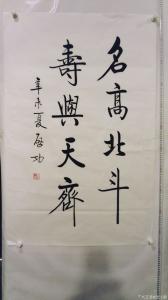 名高北斗
壽與天齊
辛未夏啓功